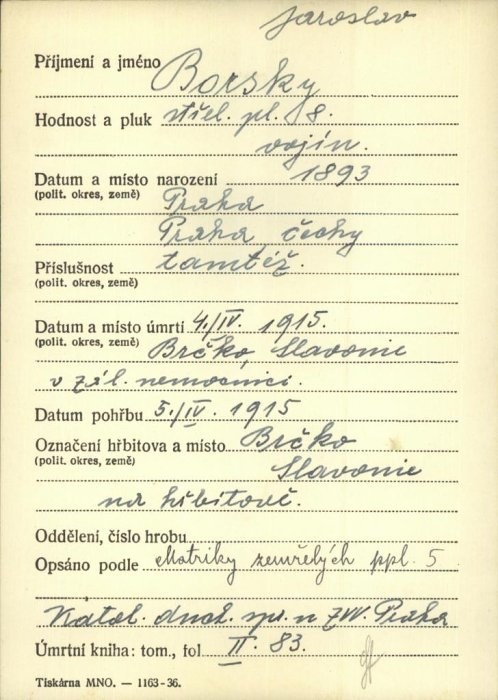 Jaroslav
Příjmení a jméno Borsky
Hodnost a pluk střel. pl. 8.
vojín.
Datum a místo narození 1893
(polit. okres, země) Praha
Praha čechy
Příslušnost tamtéž.
(polit. okres, země)
Datum a místo úmrtí 4./IV. 1915.
(polit. okres, země) Brčko, Slavonie
v zál. nemocnici.
Datum pohřbu 5./IV. 1915
Označení hřbitova a místo Brčko
(polit. okres, země) Slavonie
na hřbitově.
Oddělení, číslo hrobu
Opsáno podle Matriky zemřelých ppl. 5
Katol. duch. spr. n ZVV. Praha
Úmrtní kniha: tom., fol II. 83.
Tiskárna MNO. — 1163-36.